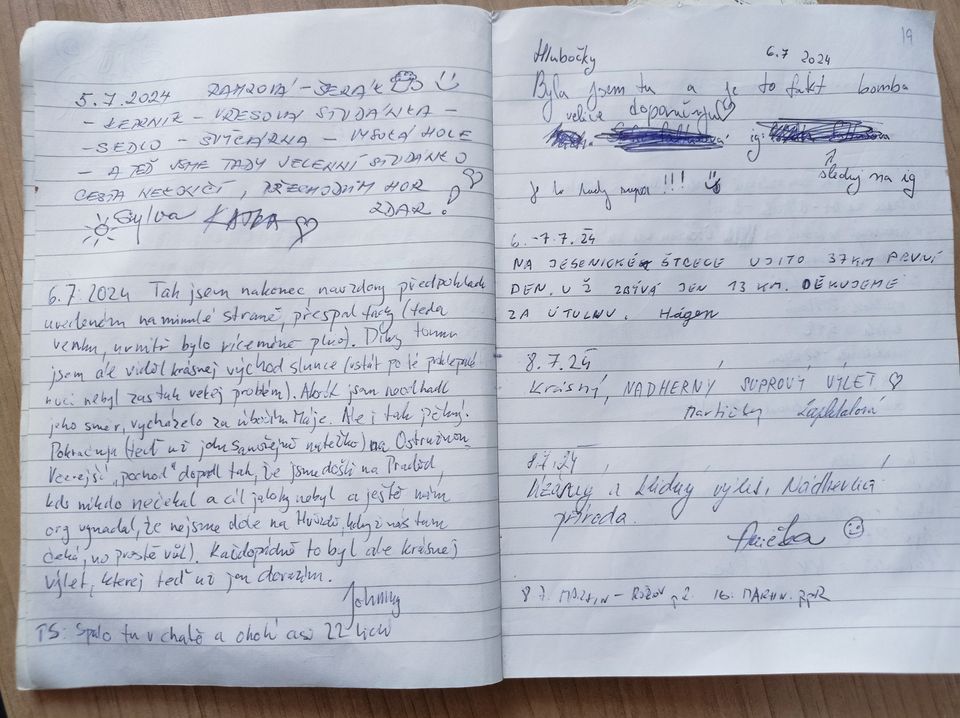 5.7.2024 RAMZOVÁ - ŠERÁK
- KEPRNÍK - VŘESOVÁ STUDÁNKA -
- SEDLO - ŠVÝCÁRNA - VYSOKÁ HOLE
- A TEĎ JSME TADY
CESTA NEKONČÍ, PŘECHODŮM HOR
ZDAR!
Sylva KATKA
6.7.2024 Tak jsem nakonec navzdory předpokladu
uvedeném na minulé straně, přespal tady (teda
venku, uvnitř bylo víceméně plno). Díky tomu
jsem ale viděl krásnej východ slunce (vstát po té
noci nebyl zas tak velkej problém). Akorát jsem neodhadl
jeho směr, vycházelo za úbočím Máje. Ale i tak pěkný.
Pokračuju (teď už jdu samozřejmě na Ostružnou.
Včerejší „pochod" dopadl tak, že jsme došli na Praděd,
kde nikdo nečekal a cíl jakoby nebyl a ještě mi
org vynadal, že nejsme dole na Hvězdě, když nás tam
čeká, no prostě vůl). Každopádně to byl ale krásnej
výlet, kterej teď už jen dorazím.
Johnny
PS: Spalo tu v chatě a okolí asi 22 lidí
19
Hlubočky 6.7 2024
Byla jsem tu a je to fakt bomba
velice doporučuju
ig:
sleduj na ig
Je to tady super!!!
6.-7.7.24
NA JESENICKÉ STRECE UJITO 37KM PRVNÍ
DEN. UŽ ZBÝVÁ JEN 13 KM. DĚKUJEME
ZA ÚTULNU. Hágen
8.7.24
Krásný, NÁDHERNÝ SUPROVÝ VÝLET
Martičky Zapletalová
8.7.24
Úžasný a klidný výlet. Nádherná
příroda.
Anička
8.7. MARTIN -